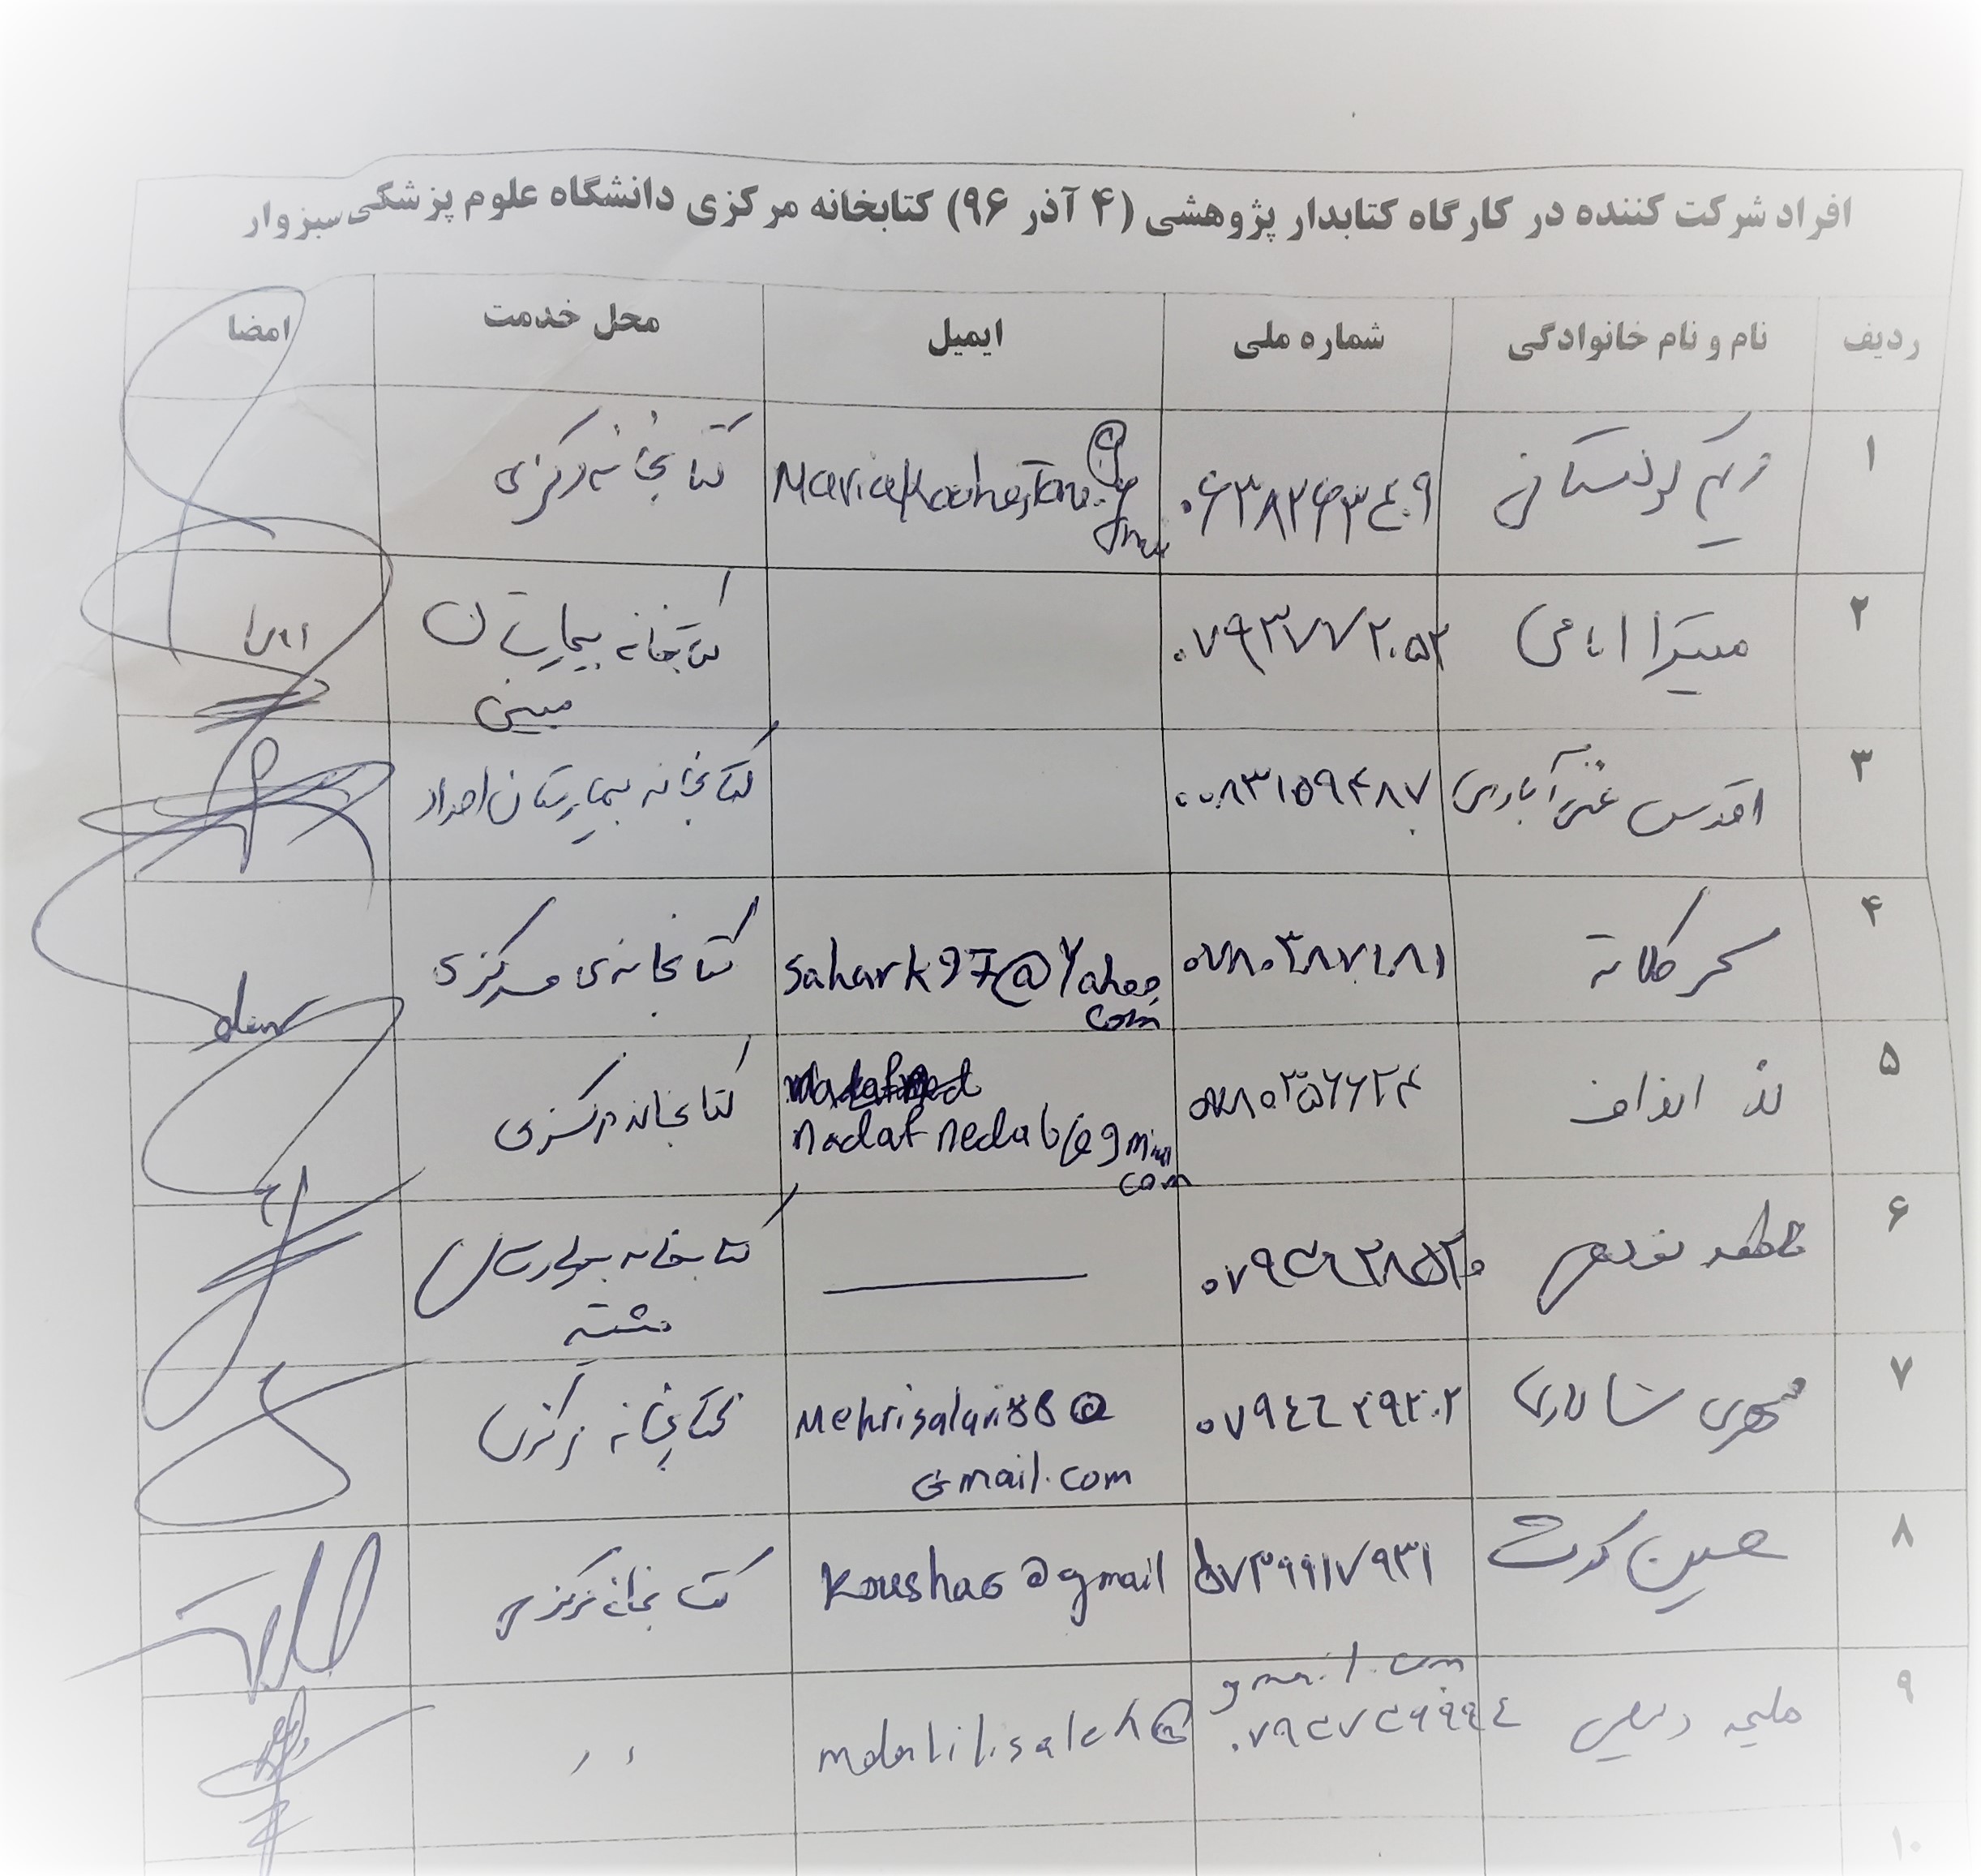 افراد شرکت کننده در کارگاه کتابدار پژوهشی (۴ آذر ۹۶) کتابخانه مرکزی دانشگاه علوم پزشکی سبزوار
ردیف نام و نام خانوادگی شماره ملی ایمیل محل خدمت امضا
۱ مریم کوهستانی ۰۶۳۸۲۶۳۴۰۹ کتابخانه مرکزی
۲ میترا امامی ۰۷۹۳۷۷۲۰۵۲ کتابخانه بیمارستان
مبینی
۳ اقدس ۰۰۸۳۱۵۹۴۸۷ کتابخانه بیمارستان امداد
۴ سحر کلاته sahark97@Yahoo. کتابخانه‌ی مرکزی
com
۵ ندا نداف ۰۷۸۰۳۵۶۶۲۴ کتابخانه مرکزی
nadaf neda6@gmail
com
۶ فاطمه کتابخانه بیمارستان
حشمتیه
۷ مهری سالاری Mehrisalari88@ کتابخانه مرکزی
Gmail.com
۸ حسین koushao@gmail کتابخانه مرکزی
gmail.com
۹ ملیحه ۰۷۹۴۷۴۶۹۹۴ " "
۱۰